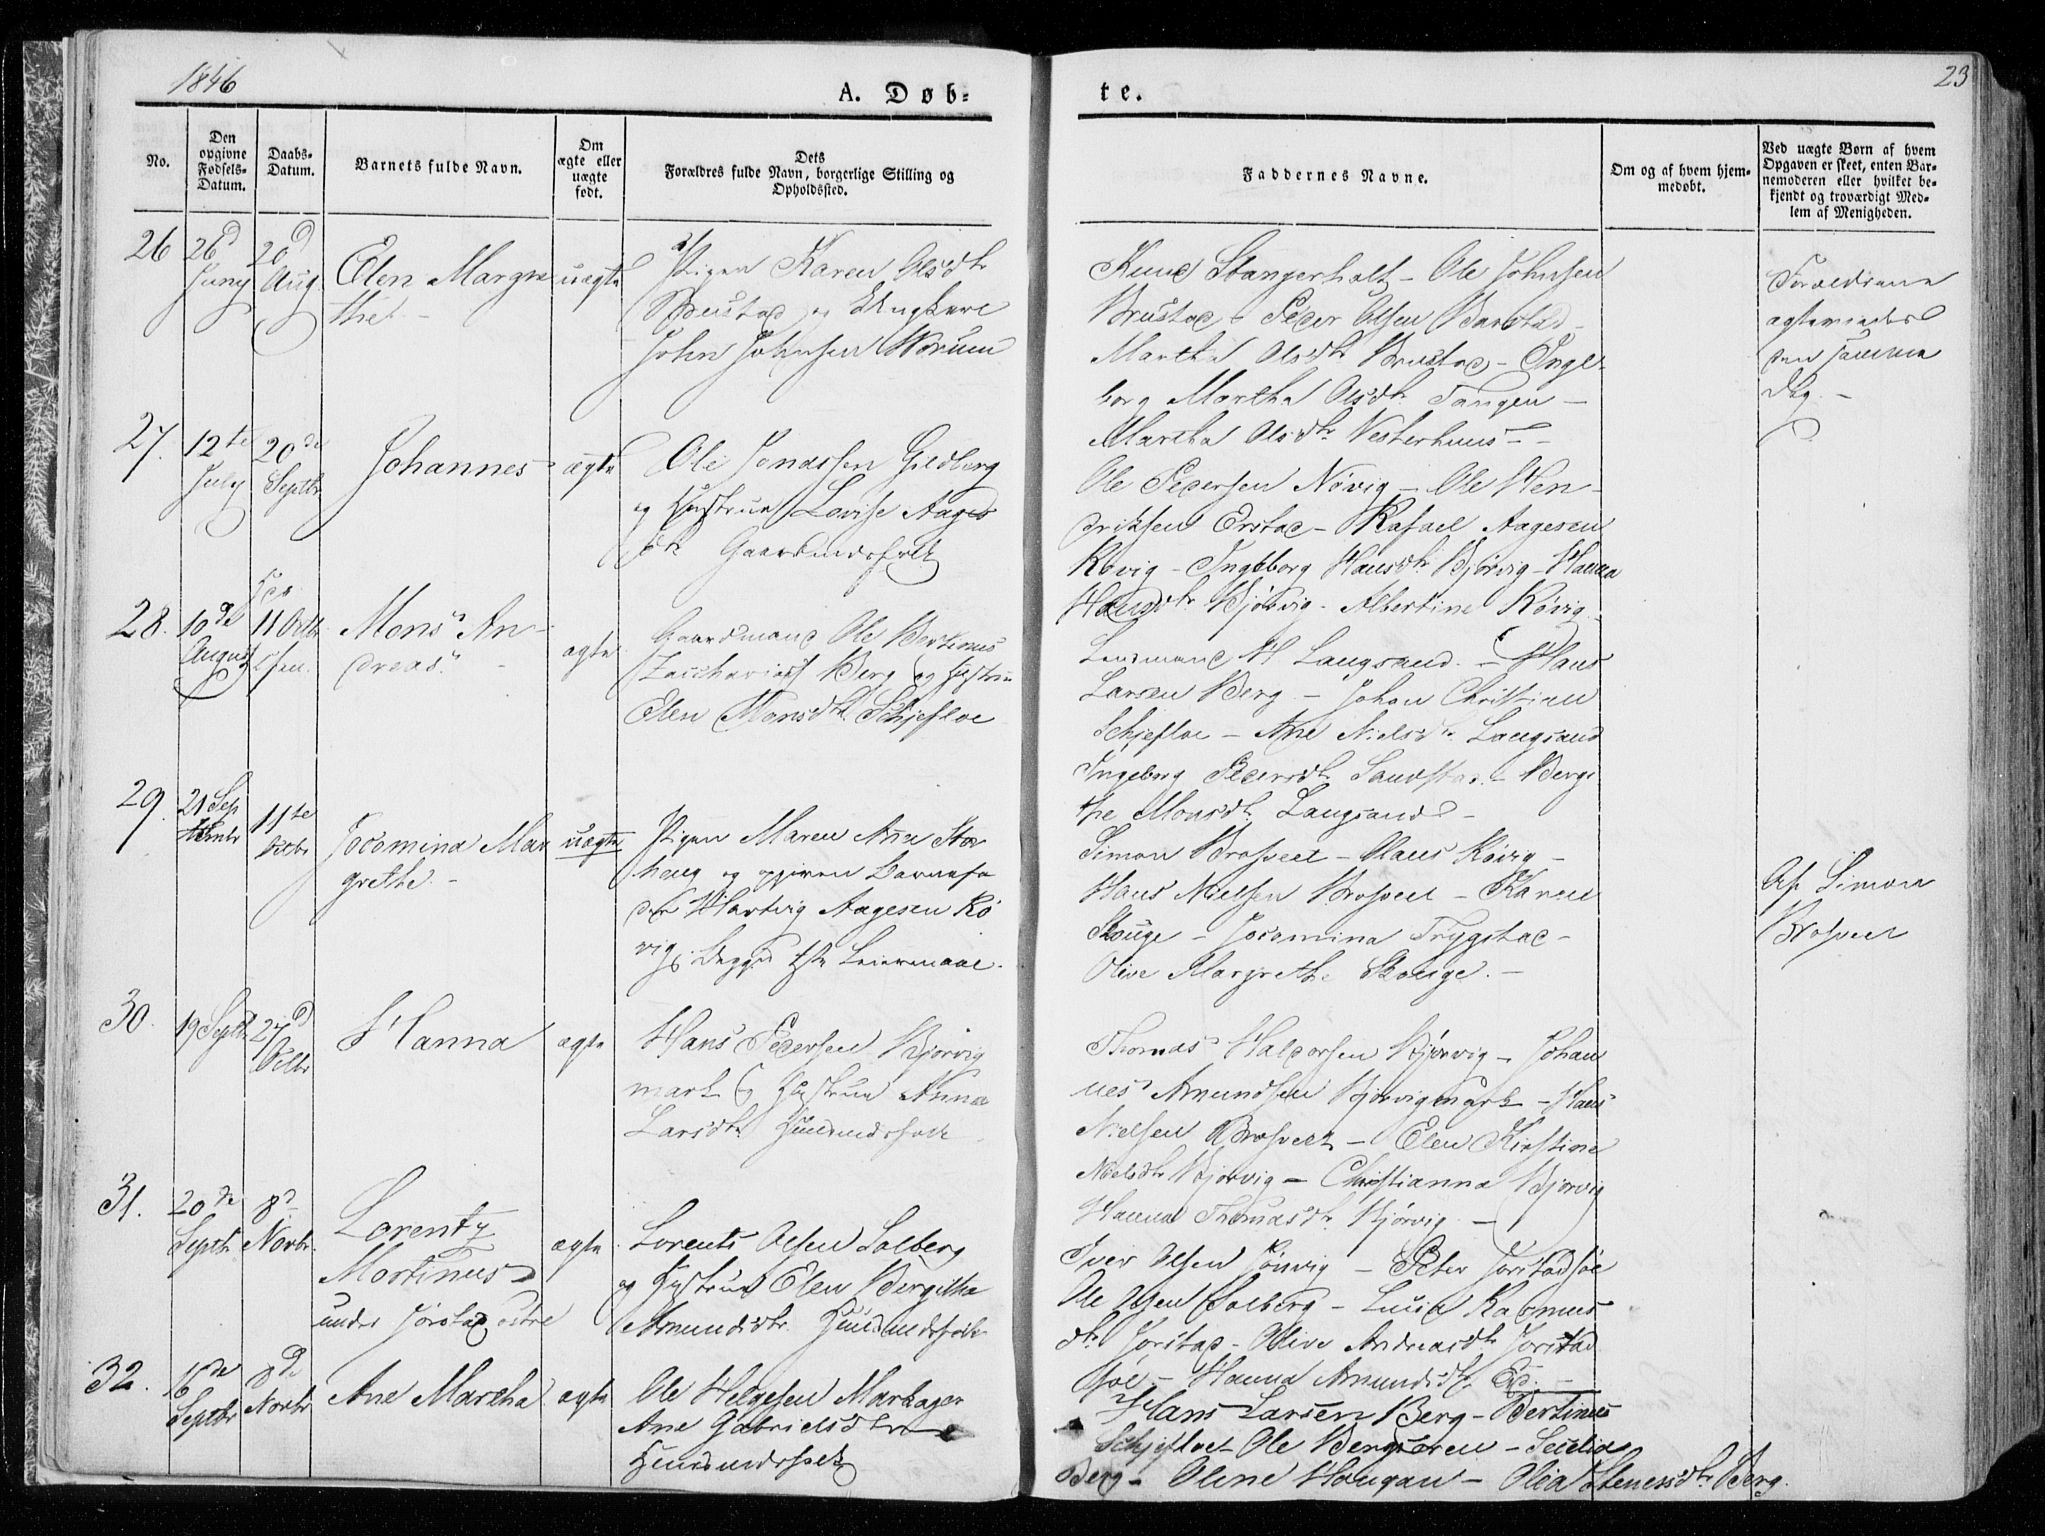 1846
A. Døb-
te.
23
No.
Den opgivne Fødsels-Datum.
Daabs-Datum.
Barnets fulde Navn.
Om ægte eller uægte født.
Dets Forældres fulde Navn, borgerlige Stilling og Opholdssted.
Faddernes Navne.
Om og af hvem hjem-medøbt.
Ved uægte Børn af hvem Opgaven er skeet, enten Bar-nemoderen eller hvilket be-kjendt og troværdigt Med-lem af Menigheden.
26
26d Juny
20d Aug
Elen Margre
the
uægte
Pigen Karen Olsdtr
Brustad og Ungkarl
John Johnsen Worum
Knud Stangerholt - Ole Johnsen
Brustad - Peder Olsen Barstad
Martha Olsdtr Brustad - Inge-
borg Martha Olsdtr Tangen -
Martha Olsdtr Vesterhuus -
Forældrene
ægteviedes
den samme
Dag. -
27.
12te July
20de Septbr
Johannes
ægte
Ole Jonassen Gildberg
og Hustrue Lovise Aages
dtr Gaardmdsfolk
Ole Pedersen Növig - Ole Hen-
driksen Erstad - Rafael Aagesen
Rövig - Ingeborg Hansdtr Bjørvig - Hanna
Hansdtr Bjørvig - Albertine Rövig
28.
10de August
11 Octbr
Mons An-
dreas
ægte
Gaardmand Ole Bertinus
Zacchariass Berg og Hustru
Elen Monsdtr Schjefloe
Lensmand M. Langsand. - Hans
Larsen Berg - Johan Christian
Schjefloe - Ane Nielsdtr Langsand
Ingeborg Pedersdtr Sandstad - Bergi
the Monsdtr Langsand -
29.
21 Sep
tembr
11te Octbr
Jocomina Mar
grethe. -
uægte
Pigen Maren Ana Stor
haug og opgiven Barnefa
der Hartvig Aagesen Rö
vig, Begges 1ste Leiermaal.
Simon Brosveet - Olaus Rövig -
Hans Nielsen Brosveet - Karen
Skouge - Jocomina Trygstad -
Olive Margrethe Skouge. -
Af Simon
Brosveet
30.
19 Septbr
27d Octbr
Hanna
ægte
Hans Pedersen Bjørvig
mark og Hustrue Anna
Larsdtr Huusmdsfolk
Thomas Haldorsen Bjørvig - Johan
nes Amundsen Bjørvigmark - Hans
Nielsen Brosveet - Elen Kirstine
Nielsdtr Bjorvig - Christianna Bjorvig
Hanna Thomasdtr Bjørvig. -
31.
20de Septbr
8d Novbr.
Lorentz
Martinus
under Jörstad östre
ægte
Lorents Olsen Solberg
og Hustrue Elen Bergitha
Amundsdtr. Huusmdsfolk
Iver Olsen - Peter Jorstadsöe
Ole Olsen Solberg - Lucia Rasmus
dtr Jorstad - Olive Andreasdtr Jorstad
söe - Hanna Amundsdtr Eid. -
32.
16de Septbr
8de Novbr
Ane Martha
ægte
Ole Helgesen Markager
Ane Gabrielsdtr
Huusmdsfolk
Hans Larsen Berg - Bertinus
Schjefloe - Ole Bergsaren - Secelia
Berg - Oline Haugan - Olea Stenersdtr Berg.